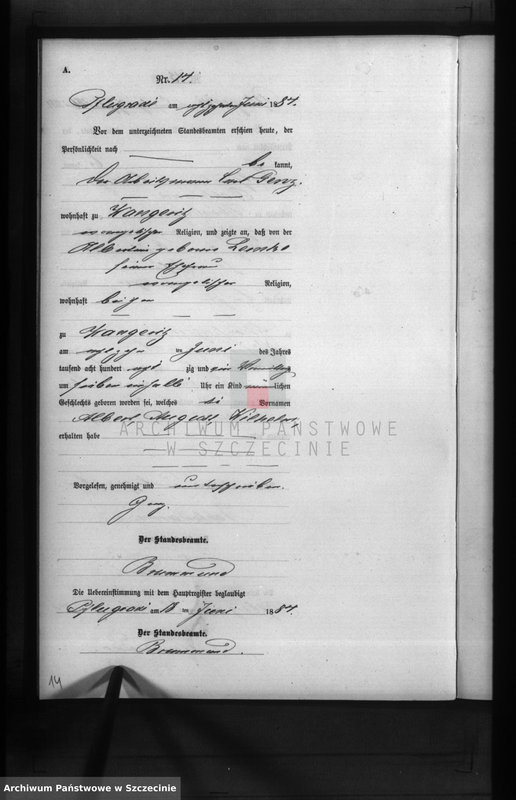 A.
Nr. 14.
am Juni 1887.
Vor dem unterzeichneten Standesbeamten erschien heute, der
Persönlichkeit nach
be kannt,
der Arbeitsmann Carl Genz,
wohnhaft zu Wangeritz
evangelischer Religion, und zeigte an, daß von der
Albertine geborene Lemke
seiner Ehefrau
evangelischer Religion,
wohnhaft bei ihm
zu Wangeritz
am ten Juni des Jahres
tausend acht hundert acht zig und Vormittags
um sieben einhalb Uhr ein Kind männ lichen
Geschlechts geboren worden sei, welches die Vornamen
Albert August Wilhelm
erhalten habe
ARCHIWUM PAŃSTWOWE
W SZCZECINIE
Vorgelesen, genehmigt und unterschrieben.
Genz.
Der Standesbeamte.
Die Uebereinstimmung mit dem Hauptregister beglaubigt
am 18 ten Juni 1887.
Der Standesbeamte.
14
Archiwum Państwowe w Szczecinie